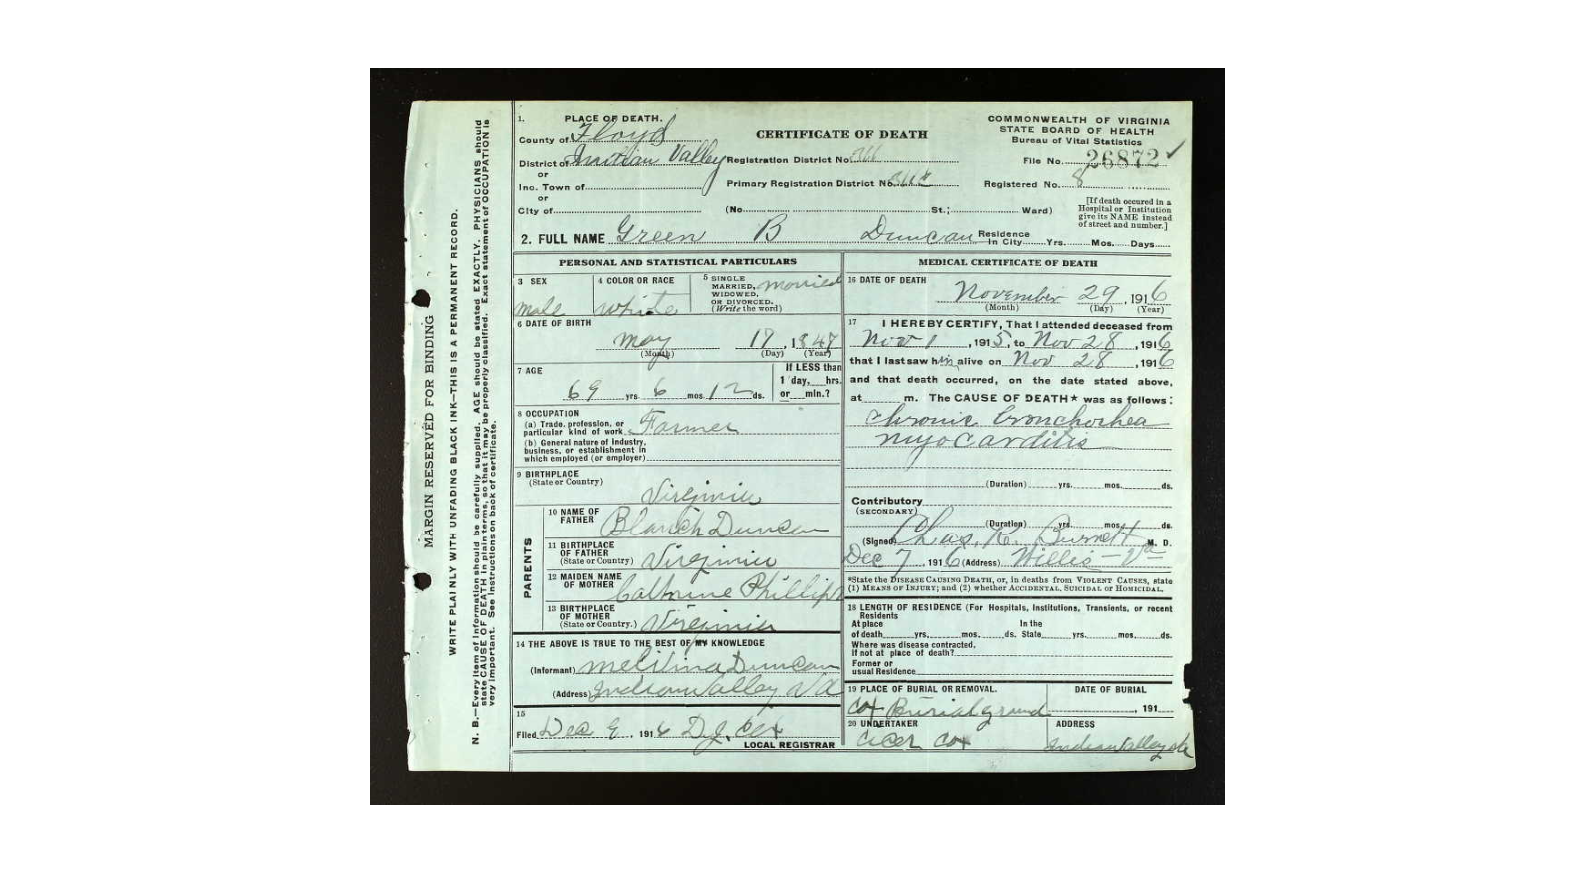 MARGIN RESERVED FOR BINDING
WRITE PLAINLY WITH UNFADING BLACK INK—THIS IS A PERMANENT RECORD.
N. B.—Every item of information should be carefully supplied. AGE should be stated EXACTLY. PHYSICIANS should
state CAUSE OF DEATH in plain terms, so that it may be properly classified. Exact statement of OCCUPATION is
very important. See instructions on back of certificate.
1. PLACE OF DEATH.
County of Floyd
District of Indian Valley
or
Inc. Town of
or
City of
CERTIFICATE OF DEATH
Registration District No.
Primary Registration District No.
(No. St.; Ward)
COMMONWEALTH OF VIRGINIA
STATE BOARD OF HEALTH
Bureau of Vital Statistics
File No. 26872
Registered No. 8
[If death occured in a
Hospital or Institution
give its NAME instead
of street and number.]
2. FULL NAME Green B Duncan Residence In City Yrs. Mos. Days
PERSONAL AND STATISTICAL PARTICULARS
3 SEX
male
4 COLOR OR RACE
white
5 SINGLE
MARRIED,
WIDOWED,
OR DIVORCED.
(Write the word)
married
6 DATE OF BIRTH
may 17, 1847
(Month) (Day) (Year)
7 AGE
69 yrs 6 mos 12 ds.
If LESS than
1 day, hrs.
or min.?
8 OCCUPATION
(a) Trade, profession, or
particular kind of work Farmer
(b) General nature of Industry,
business, or establishment in
which employed (or employer)
9 BIRTHPLACE
(State or Country)
Virginia
PARENTS
10 NAME OF
FATHER Blanch Duncan
11 BIRTHPLACE
OF FATHER
(State or Country) Virginia
12 MAIDEN NAME
OF MOTHER Cathrine Phillips
13 BIRTHPLACE
OF MOTHER
(State or Country.) Virginia
14 THE ABOVE IS TRUE TO THE BEST OF MY KNOWLEDGE
(Informant) Duncan
(Address) Indian Valley VA
15
Filed Dec 9, 1916 D.J. Cox
LOCAL REGISTRAR
MEDICAL CERTIFICATE OF DEATH
16 DATE OF DEATH
November 29, 1916
(Month) (Day) (Year)
17 I HEREBY CERTIFY, That I attended deceased from
Nov 1, 1915, to Nov 28, 1916
that I last saw him alive on Nov 28, 1916
and that death occurred, on the date stated above,
at m. The CAUSE OF DEATH* was as follows:
Chronic bronchorhea
myocarditis
(Duration) yrs. mos. ds.
Contributory
(SECONDARY)
(Duration) yrs. mos. ds.
(Signed) Chas. K. Burnett M. D.
Dec 7, 1916 (Address) Willis - Va
*State the DISEASE CAUSING DEATH, or, in deaths from VIOLENT CAUSES, state
(1) MEANS OF INJURY; and (2) whether ACCIDENTAL, SUICIDAL or HOMICIDAL.
18 LENGTH OF RESIDENCE (For Hospitals, Institutions, Transients, or recent
Residents
At place In the
of death yrs. mos. ds. State yrs. mos. ds.
Where was disease contracted,
If not at place of death?
Former or
usual Residence
19 PLACE OF BURIAL OR REMOVAL.
Cox Burial ground
DATE OF BURIAL
, 191
20 UNDERTAKER
Cox
ADDRESS
Indian Valley Va